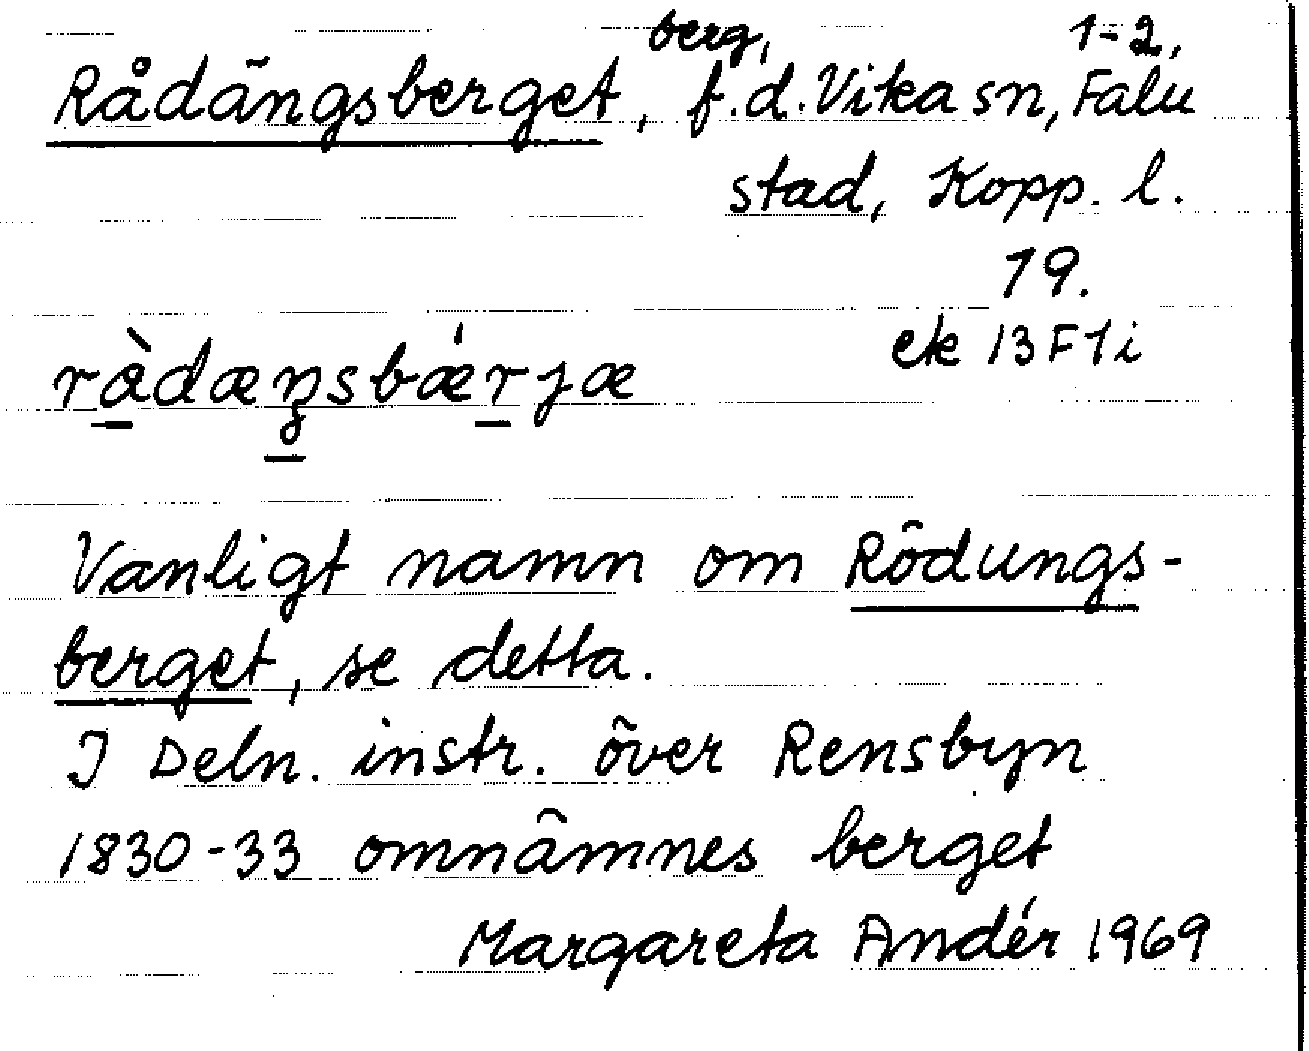 berg, 1-2,
Rådängsberget, f.d. Vika sn, Falu
stad, Kopp. l.
19.
ek 13F1i
ràdæŋsbǽrjæ
Vanligt namn om Rödungs-
berget, se detta.
I Deln. instr. över Rensbyn
1830-33 omnämnes berget
Margareta Andér 1969